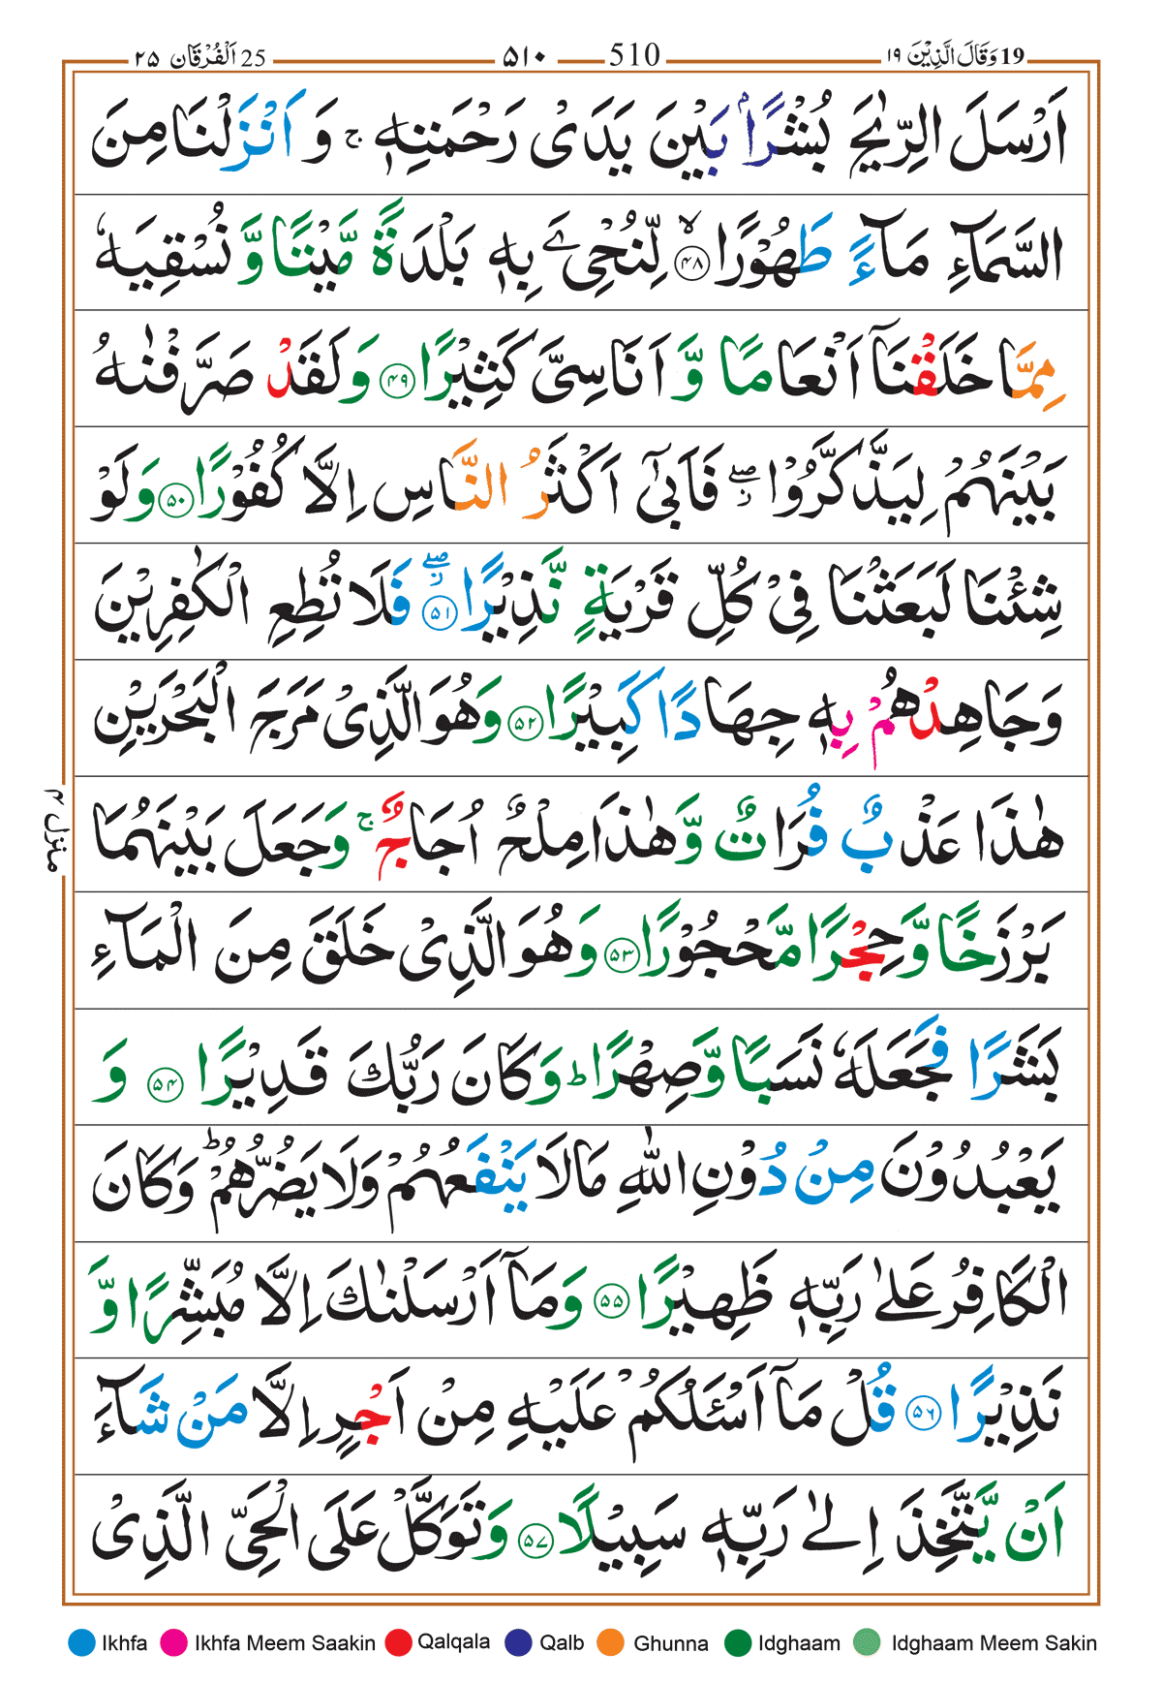 19 وَقَالَ الَّذِيْنَ ۱۹ 510 ۵۱۰ 25 اَلْفُرْقَان ۲۵
اَرْسَلَ الرِّيٰحَ بُشْرًاۢ بَيْنَ يَدَىْ رَحْمَتِهٖ ۚ وَ اَنْزَلْنَا مِنَ
السَّمَآءِ مَآءً طَهُوْرًا ۙ﴿۴۸﴾ لِّنُحْیَِۧ بِهٖ بَلْدَةً مَّيْتًا وَّ نُسْقِيَهٗ
مِمَّا خَلَقْنَاۤ اَنْعَامًا وَّ اَنَاسِىَّ كَثِيْرًا ﴿۴۹﴾ وَلَقَدْ صَرَّفْنٰهُ
بَيْنَهُمْ لِيَذَّكَّرُوْا ۖ فَاَبٰٓى اَكْثَرُ النَّاسِ اِلَّا كُفُوْرًا ﴿۵۰﴾ وَلَوْ
شِئْنَا لَبَعَثْنَا فِىْ كُلِّ قَرْيَةٍ نَّذِيْرًا ۖ﴿۵۱﴾ فَلَا تُطِعِ الْكٰفِرِيْنَ
وَجَاهِدْهُمْ بِهٖ جِهَادًا كَبِيْرًا ﴿۵۲﴾ وَهُوَ الَّذِىْ مَرَجَ الْبَحْرَيْنِ
هٰذَا عَذْبٌ فُرَاتٌ وَّهٰذَا مِلْحٌ اُجَاجٌ ۚ وَجَعَلَ بَيْنَهُمَا
بَرْزَخًا وَّحِجْرًا مَّحْجُوْرًا ﴿۵۳﴾ وَهُوَ الَّذِىْ خَلَقَ مِنَ الْمَآءِ
بَشَرًا فَجَعَلَهٗ نَسَبًا وَّصِهْرًا ؕ وَكَانَ رَبُّكَ قَدِيْرًا ﴿۵۴﴾ وَ
يَعْبُدُوْنَ مِنْ دُوْنِ اللّٰهِ مَا لَا يَنْفَعُهُمْ وَلَا يَضُرُّهُمْ ؕ وَكَانَ
الْكَافِرُ عَلٰى رَبِّهٖ ظَهِيْرًا ﴿۵۵﴾ وَمَاۤ اَرْسَلْنٰكَ اِلَّا مُبَشِّرًا وَّ
نَذِيْرًا ﴿۵۶﴾ قُلْ مَاۤ اَسْئَلُكُمْ عَلَيْهِ مِنْ اَجْرٍ اِلَّا مَنْ شَآءَ
اَنْ يَّتَّخِذَ اِلٰى رَبِّهٖ سَبِيْلًا ﴿۵۷﴾ وَتَوَكَّلْ عَلَى الْحَىِّ الَّذِىْ
منزل ۴
Ikhfa Ikhfa Meem Saakin Qalqala Qalb Ghunna Idghaam Idghaam Meem Sakin